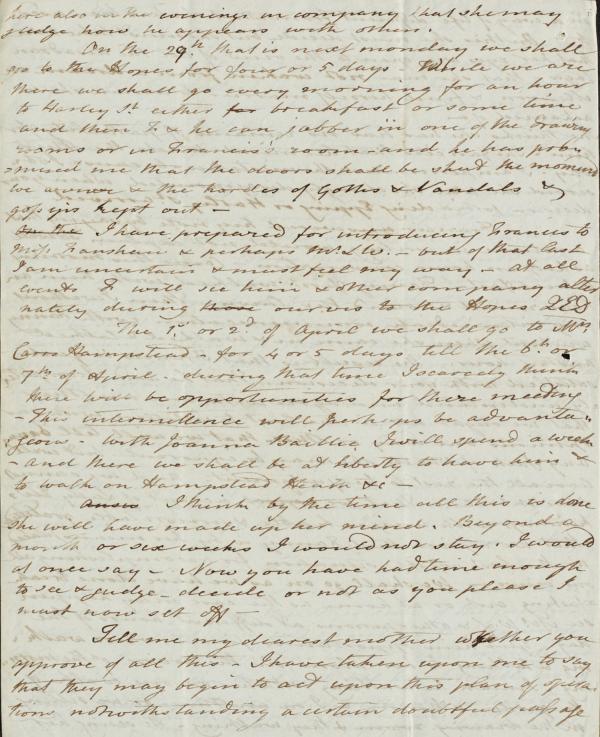 here also in the evenings in company that she may
judge how he appears with others.
On the 29th that is next monday we shall
go to the Hopes for four or 5 days While we are
there we shall go every morning for an hour
to Harley St either for breakfast or some time
and then F & he can jabber in one of the drawing
rooms or in Francis's room - and he has pro
=mised me that the doors shall be shut the moment
we arrive & the hordes of Goths & Vandals &
gossips kept out -
On the I have prepared for introducing Francis to
Miss Fanshaw & perhaps Mr - out of that last
I am uncertain & must feel my way - at all
events F will see him & other company alter
nately during our vis to the Hopes QED
The 1st or 2d of April we shall go to Mrs
Carrs Hampstead - for 4 or 5 days till the 6th or
7th of April - during that time I scarcely think
there will be opportunities for there meeting
- This intermittence will perhaps be advanta
geous - with Joanna Baillie I will spend a week
- and there we shall be at liberty to have him &
to walk on Hampstead Heath &c -
I think by the time all this is done
she will have made up her mind. Beyond a
month or six weeks I would not stay. I would
at once say - Now you have had time enough
to see & judge - decide or not as you please I
must now set off -
Tell me my dearest mother whether you
approve of all this - I have taken upon me to say
that they may begin to act upon this plan of opera
tions notwithstanding a certain doubtful passage